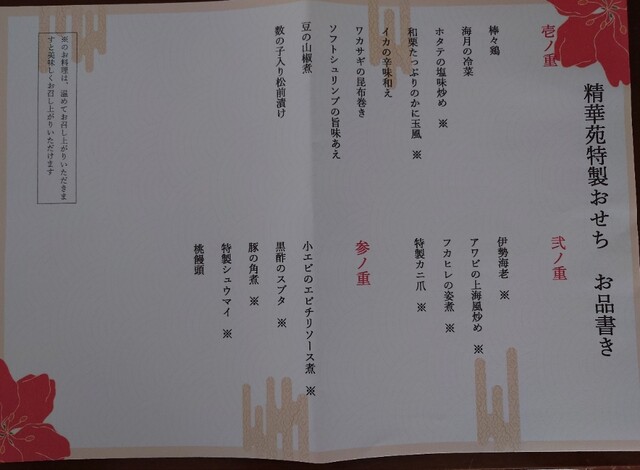 精華苑特製おせち　お品書き
壱ノ重
棒々鶏
海月の冷菜
ホタテの塩味炒め　※
和栗たっぷりのかに玉風　※
イカの辛味和え
ワカサギの昆布巻き
ソフトシュリンプの旨味あえ
豆の山椒煮
数の子入り松前漬け
弐ノ重
伊勢海老　※
アワビの上海風炒め　※
フカヒレの姿煮　※
特製カニ爪　※
参ノ重
小エビのエビチリソース煮　※
黒酢のスブタ　※
豚の角煮　※
特製シュウマイ　※
桃饅頭
※のお料理は、温めてお召し上がりいただきま
すと美味しくお召し上がりいただけます